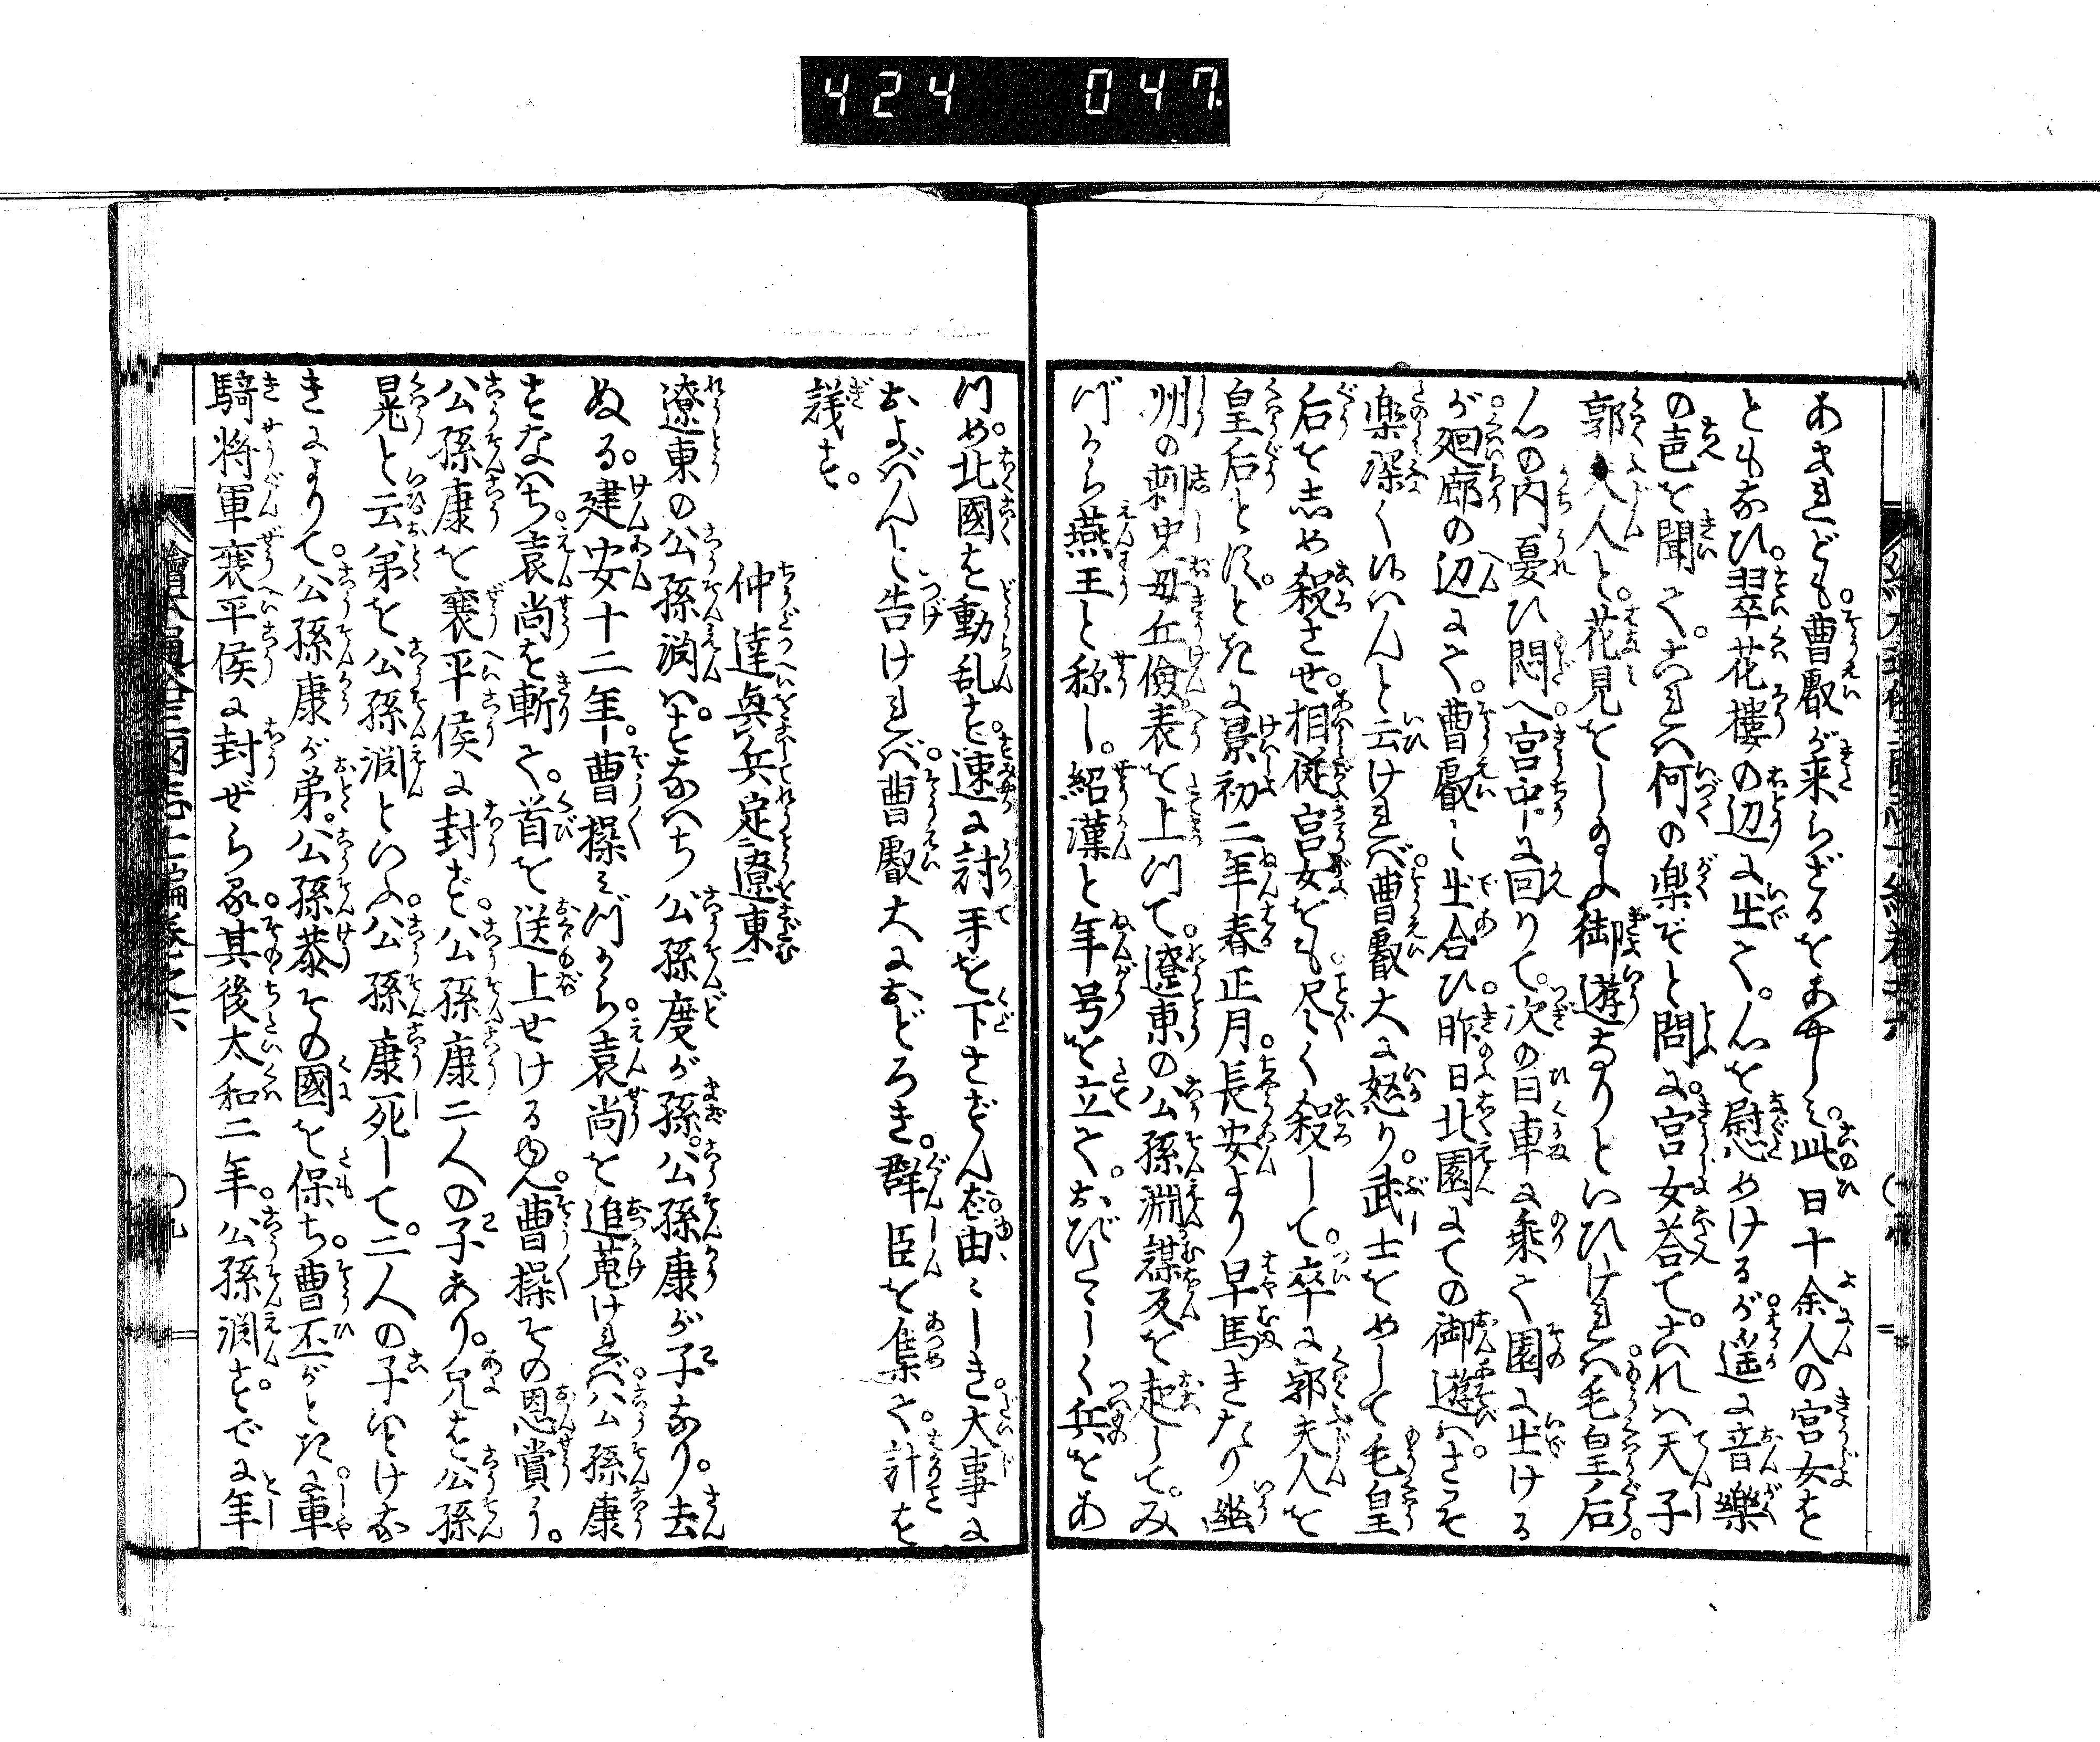 424 047
あまれども曹叡が来らざるをあやしみ。此日十余人の宮女を
ともなひ。翠花樓の辺に出て。心を慰めけるが。遥に音樂
の声を聞て。これハ何の楽ぞと問に。宮女荅て。これハ天子
郭夫人と。花見をしるよ御遊なりといひけれハ毛皇后。
心の内憂ひ悶へ。宮中に回りて。次の日車に乗て園に出ける
が。廻廊の辺にて。曹叡に出合ひ。昨日北園にての御遊ハ。さぞ
楽深く候ハんと云けれバ。曹叡大に怒り。武士をめして毛皇
后をしめ殺させ。相従宮女をも尽く殺して。卒に郭夫人を
皇后とす。ときに景初二年春正月。長安より早馬きたり幽
州の刺史毋丘儉。表を上りて。遼東の公孫淵謀反を起して。み
づから燕王と称し。紹漢と年号を立て。おびたゝしく兵をあ
つめ。北國を動乱す。速に討手を下さずんバ。由ゝしき大事に
およべんと告けれバ。曹叡大におどろき。群臣を集て。計を
議す。
仲達奥兵定遼東
遼東の公孫淵ハ。すなハち公孫度が孫。公孫康が子なり。去
ぬる。建安十二年。曹操みづから。袁尚を追蒐けれバ。公孫康
すなハち。袁尚を斬て。首を送上せけるゆへ。曹操その恩賞に。
公孫康を襄平侯に封ず。公孫康二人の子あり。兄を公孫
晃と云弟を公孫淵といふ。公孫康死して。二人の子いとけな
きによりて。公孫康が弟。公孫恭その國を保ち。曹丕がときに。車
騎将軍襄平侯に封ぜらる。其後太和二年。公孫淵。すでに年
繪本通俗三國志七編巻之六
〇九